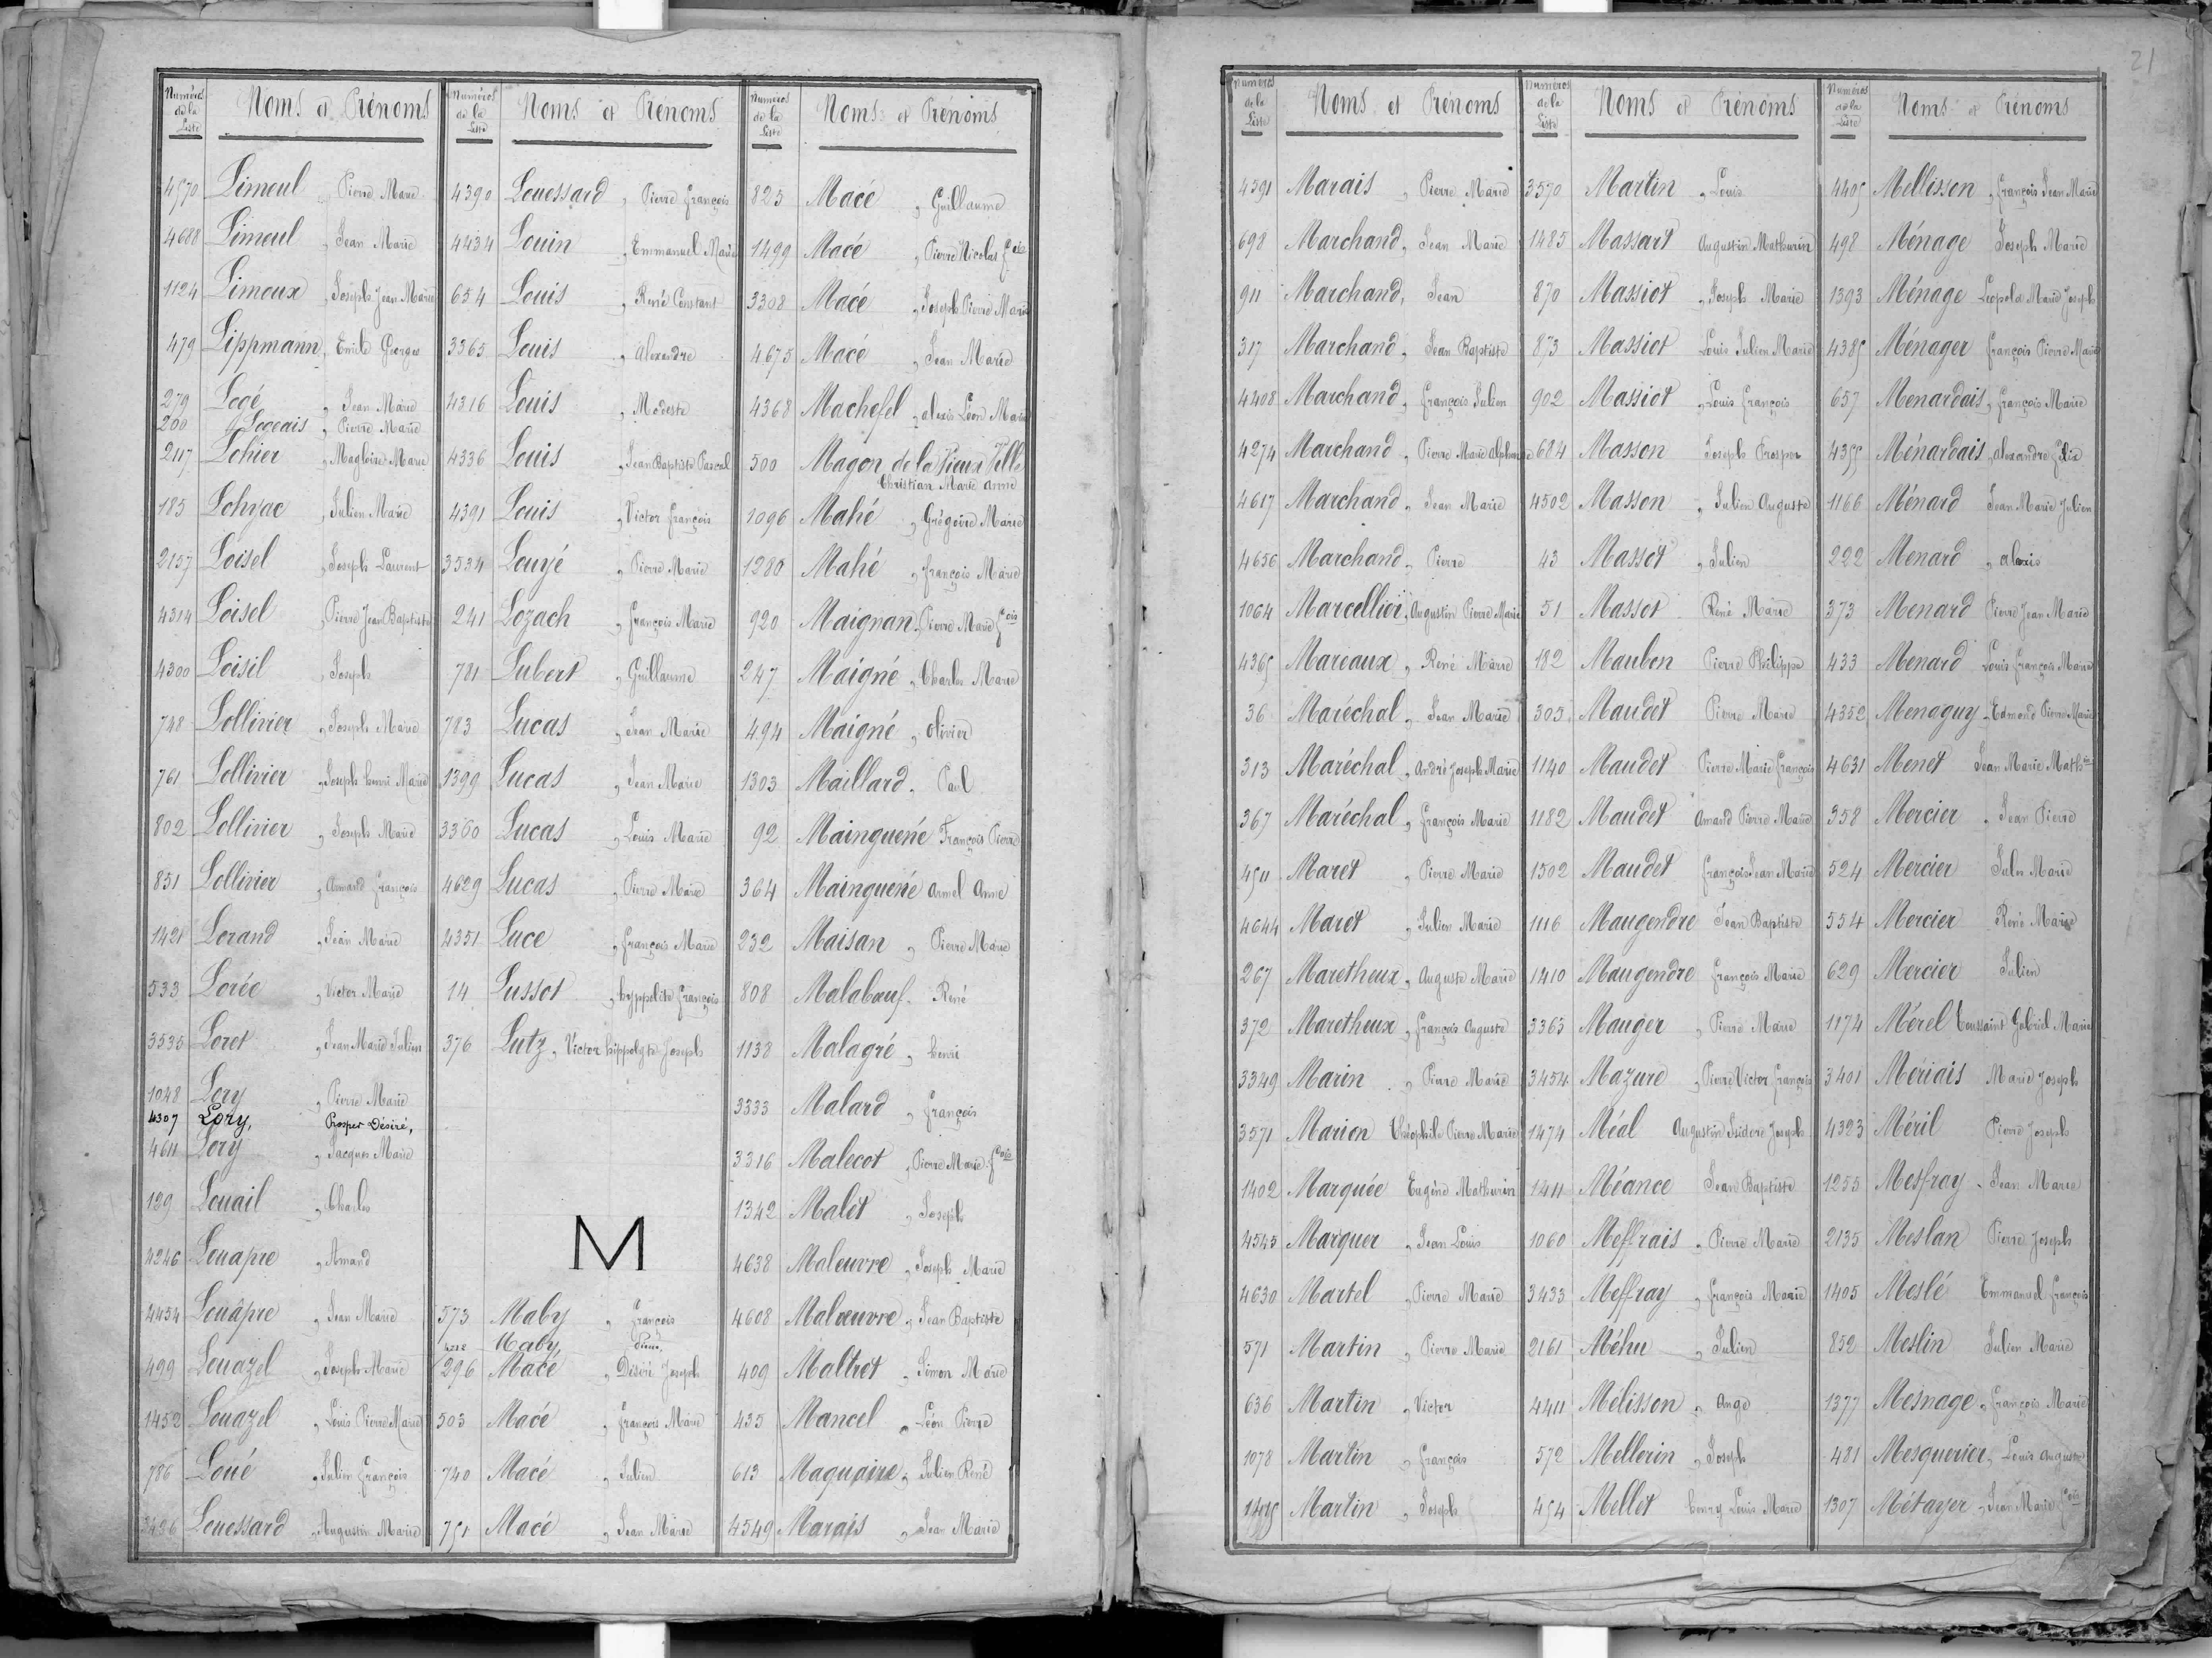 Numéros de la Liste Noms et Prénoms
4570 Limeul, Pierre Marie
4688 Limeul, Jean Marie
1124 Limoux, Joseph Jean Marie
479 Lippmann, Emile Georges
279 Logé, Jean Marie
200 Logeais, Pierre Marie
2117 Lohier, Magloire Marie
185 Lohyac, Julien Marie
2157 Loisel, Joseph Laurent
4314 Loisel, Pierre Jean Baptiste
4300 Loisil, Joseph
748 Lollivier, Joseph Marie
761 Lollivier, Joseph henri Marie
802 Lollivier, Joseph Marie
851 Lollivier, Armand François
1421 Lorand, Jean Marie
533 Lorée, Victor Marie
3535 Loret, Jean Marie Julien
1048 Lory, Pierre Marie
4307 Lory, Prosper Désiré,
4611 Lory, Jacques Marie
129 Louail, Charles
4246 Louapre, Amand
4454 Louâpre, Jean Marie
499 Louazel, Joseph Marie
1452 Louazel, Louis Pierre Marie
786 Loué, Julien François
3426 Louessard, Augustin Marie
Numéros de la Liste Noms et Prénoms
4390 Louessard, Pierre François
4434 Louin, Emmanuel Marie
654 Louis, René Constant
3365 Louis, Alexandre
4316 Louis, Modeste
4336 Louis, Jean Baptiste Pascal
4391 Louis, Victor François
3534 Louyé, Pierre Marie
241 Lozach, François Marie
781 Lubert, Guillaume
783 Lucas, Jean Marie
1399 Lucas, Jean Marie
3360 Lucas, Louis Marie
4629 Lucas, Pierre Marie
4351 Luce, François Marie
14 Lussot, hyppolite François
376 Lutz, Victor hippolyte Joseph
M
573 Maby, François
Maby, Pierre,
296 Macé, Désiré Joseph
503 Macé, François Marie
740 Macé, Julien
751 Macé, Jean Marie
Numéros de la Liste Noms et Prénoms
823 Macé, Guillaume
1499 Macé, Pierre Nicolas fcois
3308 Macé, Joseph Pierre Marie
4675 Macé, Jean Marie
4368 Machefel, alexis Léon Marie
500 Magon de la Vieux Ville
Christian Marie Anne
1096 Mahé, Grégoire Marie
1280 Mahé, François Marie
920 Maignan, Pierre Marie fcois
247 Maigné, Charles Marie
494 Maigné, olivier
1303 Maillard, Paul
92 Mainguené François Pierre
364 Mainguené Armel Anne
232 Maisan, Pierre Marie
808 Malabœuf, René
1138 Malagré, henri
3333 Malard, François
3316 Malecot, Pierre Marie fcois
1342 Malet, Joseph
4638 Maleuvre, Joseph Marie
4608 Malœuvre, Jean Baptiste
409 Maltret, Simon Marie
435 Mancel, Léon Pierre
613 Maquaire, Julien René
4549 Marais, Jean Marie
21
Numéros de la Liste Noms et Prénoms
4391 Marais, Pierre Marie
698 Marchand, Jean Marie
911 Marchand, Jean
317 Marchand, Jean Baptiste
4408 Marchand, François Julien
4274 Marchand, Pierre Marie Alphonse
4617 Marchand, Jean Marie
4656 Marchand, Pierre
1064 Marcellier, Augustin Pierre Marie
4365 Mareaux, René Marie
36 Maréchal, Jean Marie
313 Maréchal, André Joseph Marie
367 Maréchal, François Marie
4511 Maret, Pierre Marie
4644 Maret, Julien Marie
267 Maretheux, Auguste Marie
372 Maretheux, François Auguste
3349 Marin, Pierre Marie
3571 Marion Théophile Pierre Marie
1402 Marquée Eugène Mathurin
4545 Marquer, Jean Louis
4630 Martel, Pierre Marie
571 Martin, Pierre Marie
636 Martin, Victor
1078 Martin, François
Martin, Joseph
Numéros de la Liste Noms et Prénoms
3570 Martin, Louis
1485 Massart Augustin Mathurin
870 Massiot, Joseph Marie
873 Massiot Louis Julien Marie
902 Massiot, Louis François
684 Masson Joseph Prosper
4502 Masson, Julien Auguste
43 Massot, Julien
51 Massot René Marie
182 Mauben Pierre Philippe
305 Maudet Pierre Marie
1140 Maudet Pierre Marie François
1182 Maudet Amand Pierre Marie
1502 Maudet François Jean Marie
1116 Maugendre Jean Baptiste
1410 Maugendre François Marie
3365 Mauger, Pierre Marie
3454 Mazure, Pierre Victor François
1474 Méal Augustin Isidore Joseph
1411 Méance Jean Baptiste
1060 Meffrais, Pierre Marie
3433 Meffray, François Marie
2161 Méhu, Julien
4411 Mélisson, Ange
572 Mellerin, Joseph
454 Mellet henry Louis Marie
Numéros de la Liste Noms et Prénoms
4405 Mellisson, François Jean Marie
498 Ménage Joseph Marie
1393 Ménage Léopold Marie Joseph
4385 Ménager François Pierre Marie
657 Menardais, François Marie
4355 Ménardais, Alexandre félix
1166 Ménard Jean Marie Julien
222 Menard, alexis
373 Menard Pierre Jean Marie
433 Menard Louis François Marie
4352 Menaguy, Edmond Pierre Marie
4631 Menet Jean Marie Mathin
358 Mercier, Jean Pierre
524 Mercier Jules Marie
554 Mercier René Marie
629 Mercier Julien
1174 Mérel Toussaint Gabriel Marie
3401 Mériais Marie Joseph
4323 Méril Pierre Joseph
1255 Mesfray, Jean Marie
2135 Meslan Pierre Joseph
1405 Meslé Emmanuel François
852 Meslin Julien Marie
1377 Mesnage, François Marie
481 Mesquerier, Louis Auguste
1307 Métayer, Jean Marie fcois